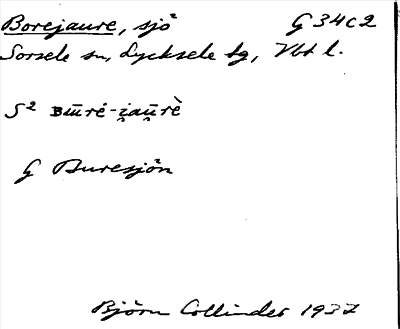 Borejaure, sjö G 34c2
Sorsele sn, Lycksele tg, Vbt l.
S² ʙɯ̄ré-i̯au̯rè
G Buresjön
Björn Collinder 1937